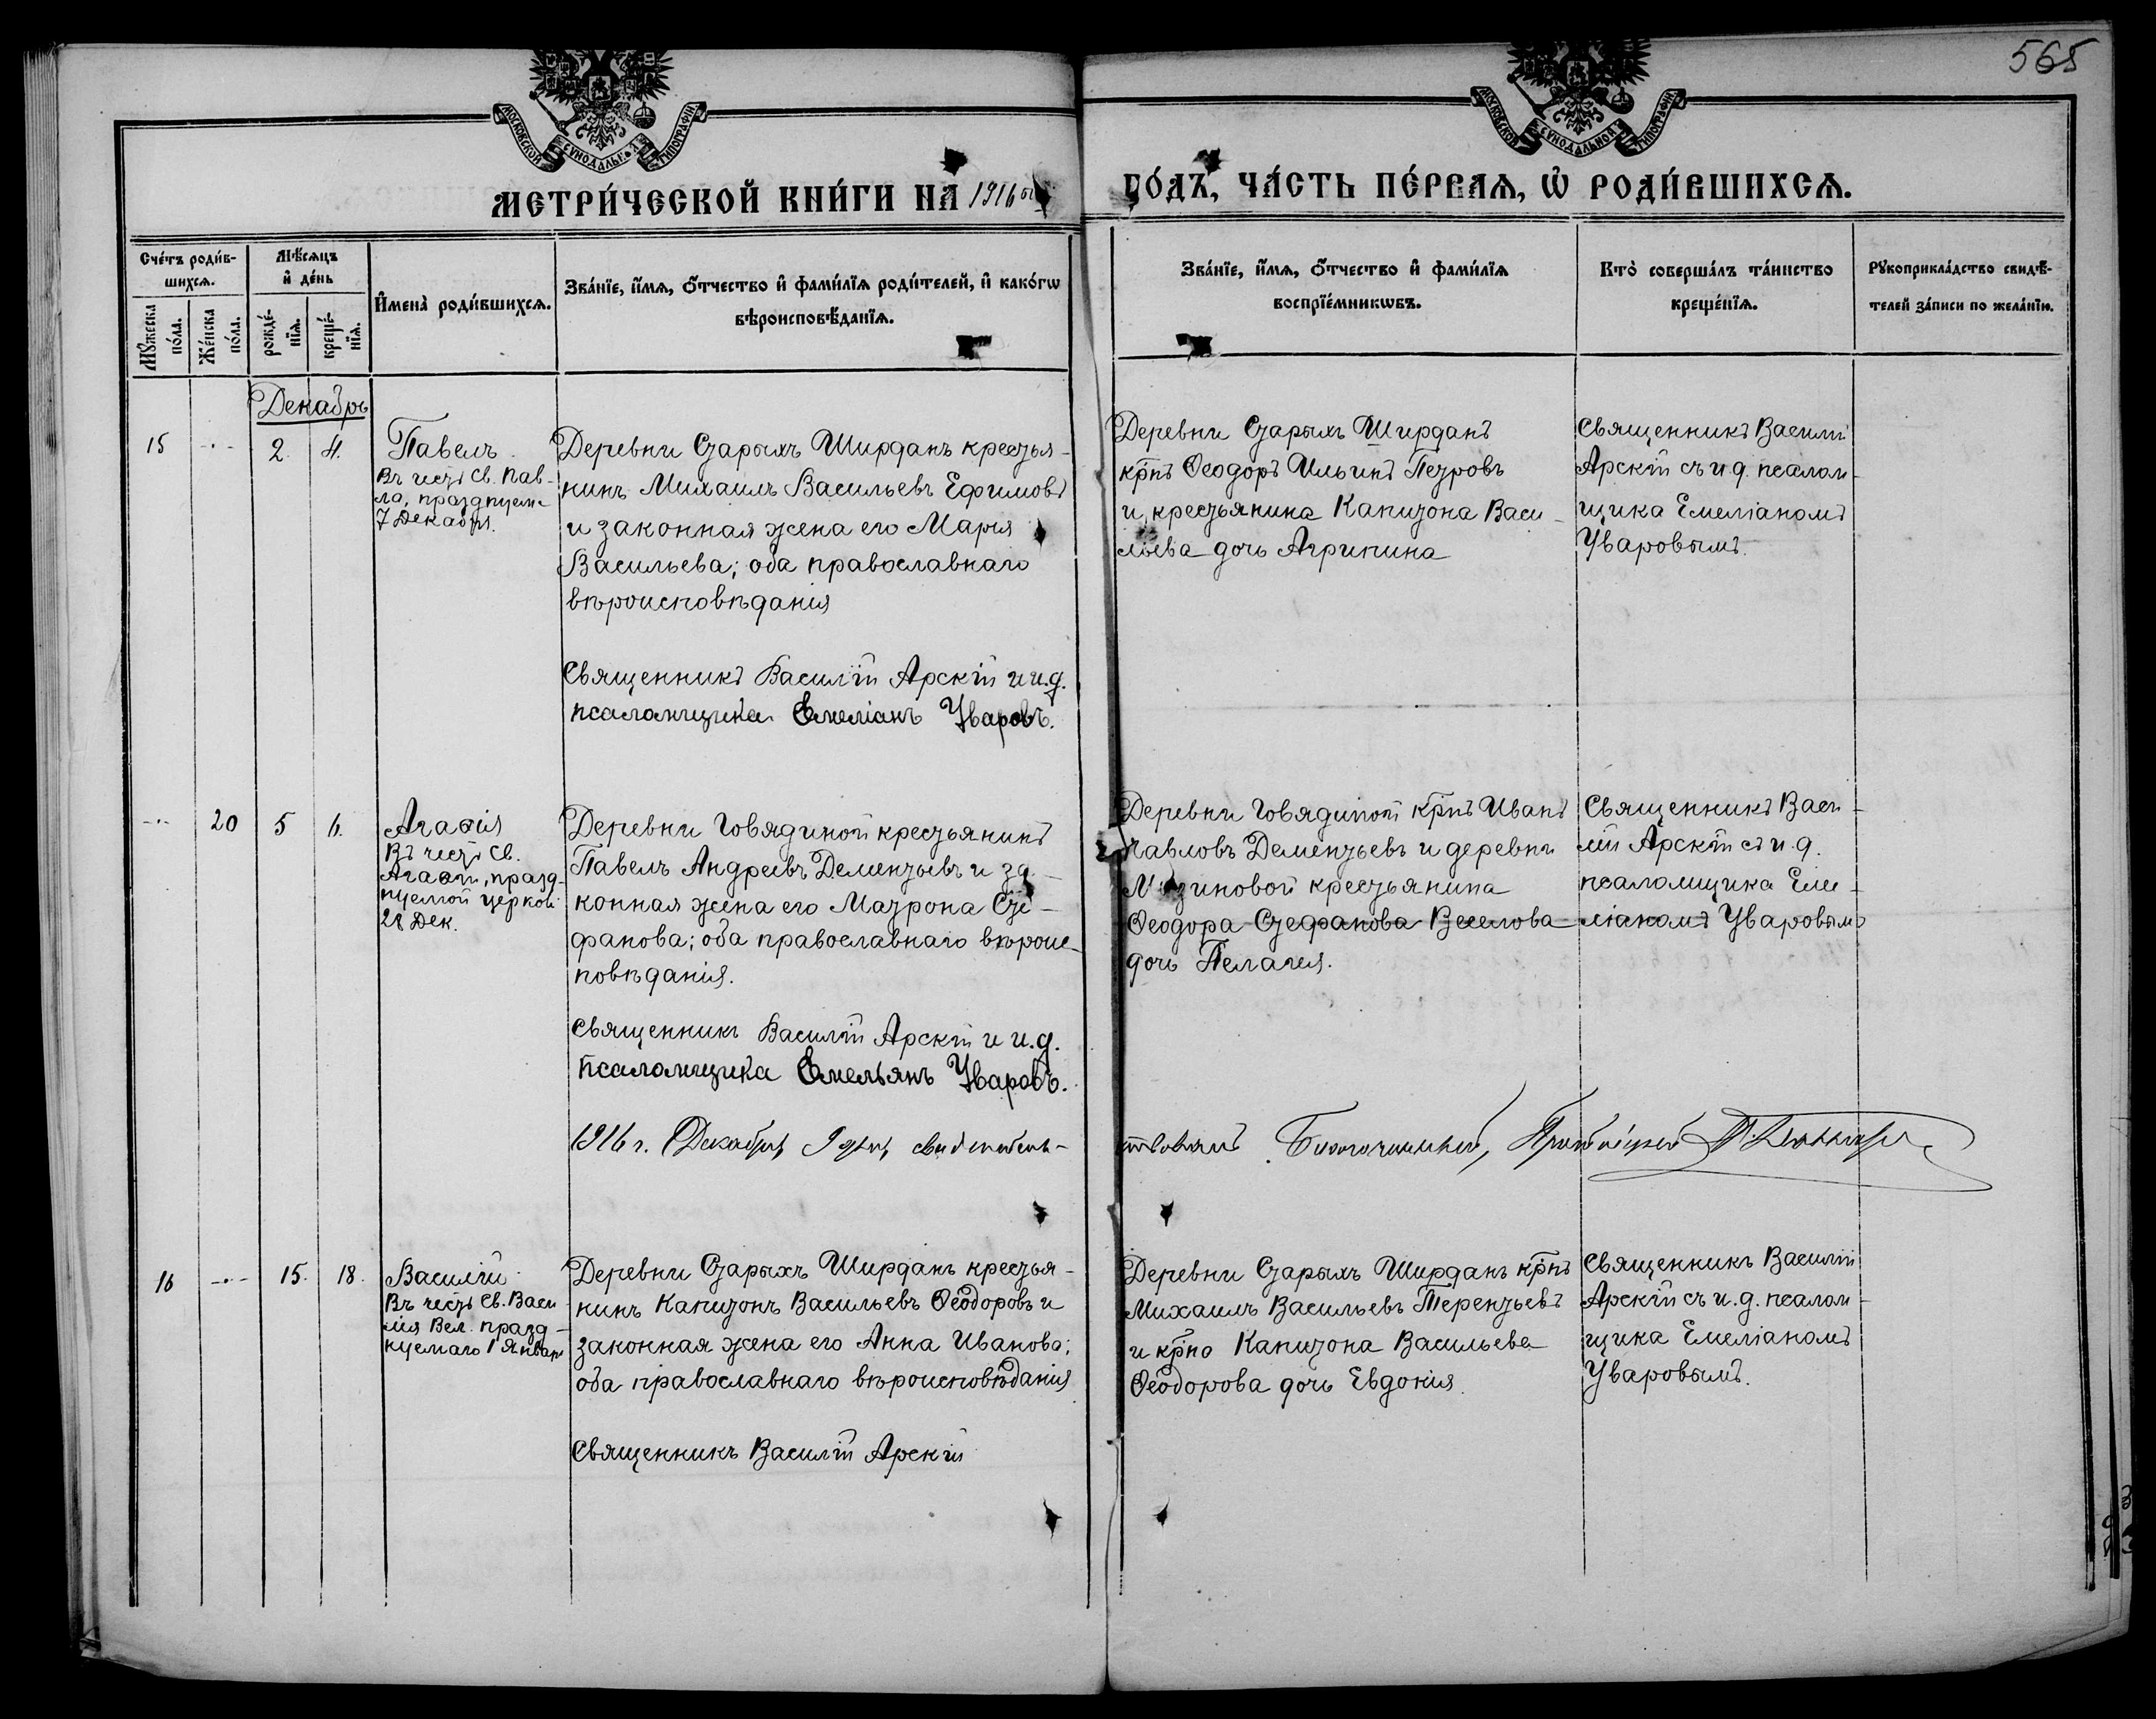 565
МОСКОВСКОЙ СУНОДАЛЬНОЙ ТИПОГРАФІИ
МОСКОВСКОЙ СУНОДАЛЬНОЙ ТИПОГРАФІИ
МЕТРИ́ЧЕСКОЙ КНИ́ГИ НА 1916 ый ГО́ДЪ, ЧА́СТЬ ПЕ́РВАѦ, Ѡ҆ РОДИ́ВШИХСѦ.
Сче́тъ роди́в-
шихсѧ.
Мꙋ́жеска
по́ла.
Же́нска
по́ла.
Мѣ́сѧцъ
и҆ де́нь
рожде́-
нїѧ.
креще́-
нїѧ.
И҆мена̀ роди́вшихсѧ.
Зва́нїе, и҆́мѧ, ѻ҆́тчество и҆ фами́лїѧ роди́телей, и҆ како́гѡ
вѣроисповѣ́данїѧ.
Зва́нїе, и҆́мѧ, ѻ҆́тчество и҆ фами́лїѧ
воспрїе́мникѡвъ.
Кто̀ соверша́лъ та́инство
креще́нїѧ.
Рꙋкоприкла́дство свидѣ́-
телей за́писи по жела́нїю.
Декабрь
15
-·-
2.
4.
Павелъ.
Въ честь Св. Пав-
ла, празднуем.
7 Декабря.
Деревни Старыхъ Ширданъ крестья-
нинъ Михаилъ Васильевъ Ефимовъ
и законная жена его Марія
Васильева; оба православнаго
вѣроисповѣданія
Священникъ Василій Арскій и и.д.
псаломщика Емеліанъ Уваровъ.
Деревни Старыхъ Ширданъ
крнъ Ѳеодоръ Ильинъ Петровъ
и крестьянина Капитона Васи-
льева дочь Агрипина
Священникъ Василій
Арскій съ и.д. псалом-
щика Емеліаномъ
Уваровымъ.
-·-
20
5
6.
Агаѳія
Въ честь Св.
Агаѳіи, празд-
нуемой церков.
28 Дек.
Деревни Говядиной крестьянинъ
Павелъ Андреевъ Дементьевъ и за-
конная жена его Матрона Сте-
фанова; оба православнаго вѣроис-
повѣданія.
Священникъ Василій Арскій и и.д.
псаломщика Емельянъ Уваровъ.
Деревни Говядиной крнъ Иванъ
Павловъ Дементьевъ и деревни
крестьянина
Ѳеодора Стефанова Веселова
дочь Пелагея.
Священникъ Васи-
лій Арскій съ и.д.
псаломщика Еме-
ліаномъ Уваровымъ
1916 г. Декабря 9 дня, свидѣтель-
ствовалъ Благочинный, Протоіерей
16
-·-
15.
18.
Василій.
Въ честь Св. Васи
лія Вел. празд-
нуемаго 1 Январ
Деревни Старыхъ Ширданъ крестья-
нинъ Капитонъ Васильевъ Ѳеодоровъ и
законная жена его Анна Иванова;
оба православнаго вѣроисповѣданія
Священникъ Василій Арскій
Деревни Старыхъ Ширданъ крнъ
Михаилъ Васильевъ Терентьевъ
и крна Капитона Васильева
Ѳеодорова дочь Евдокія.
Священникъ Василій
Арскій съ и.д. псалом-
щика Емеліаномъ
Уваровымъ.